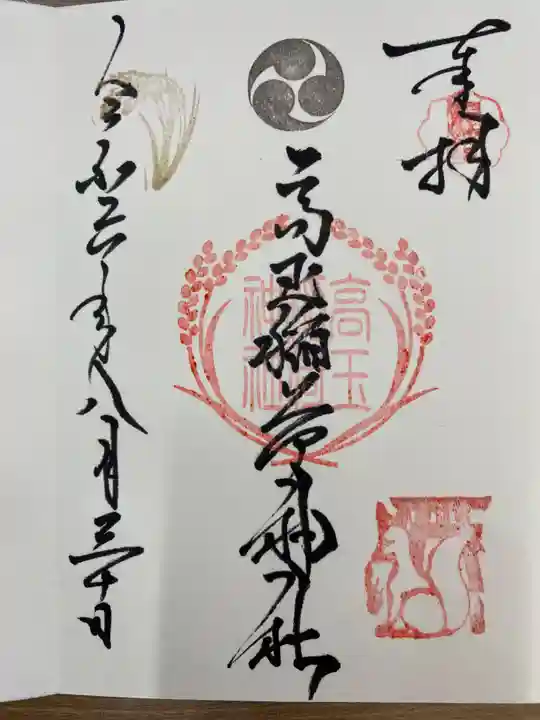 奉拝
高玉稲荷神社
高玉
稲荷
神社
令和六年八月三十日